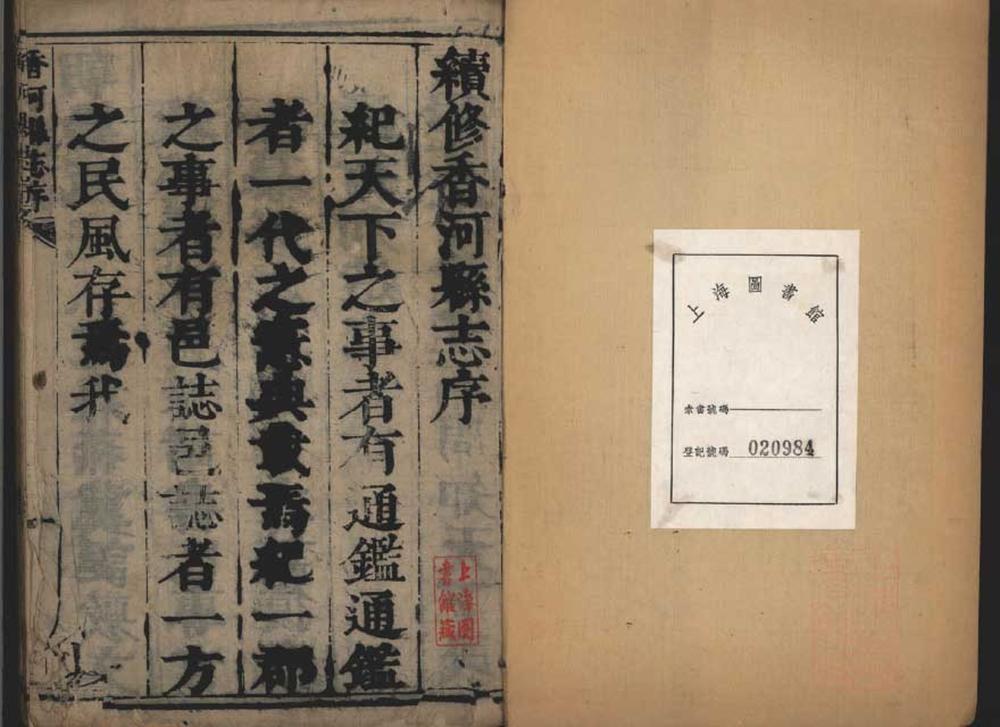 上海圖書館
索書號碼
登記號碼 020984
續修香河縣志序
紀天下之事者有通鑑通鑑
者一代之憲典載焉紀一郡
之事者有邑誌邑誌者一方
之民風存焉我
上海圖書館藏
香河縣志序